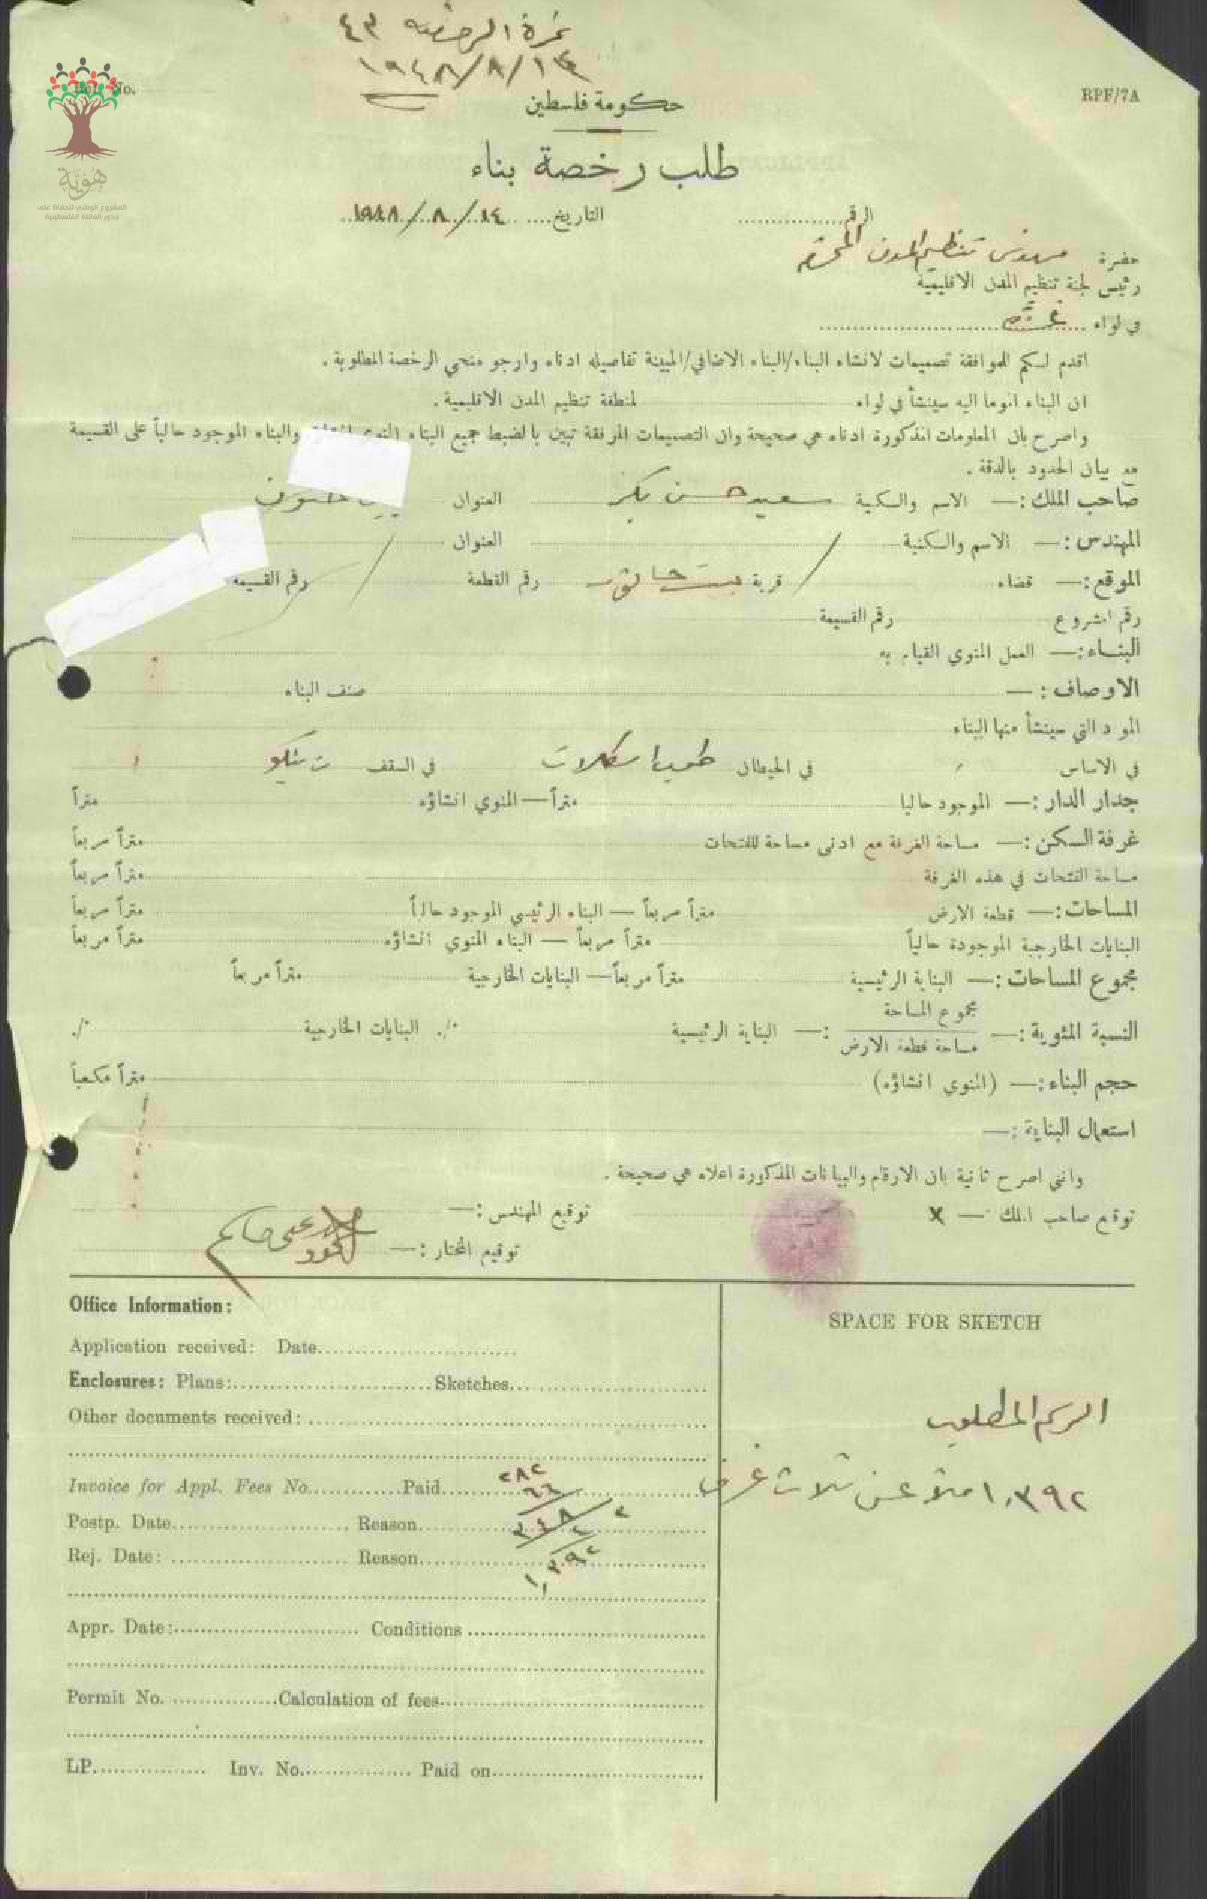 غزة الرخصة ٤٣
١٩٤٨/٨/١٤
No.
RPF/7A
هوية
المشروع الوطني للحفاظ على
جذور العائلة الفلسطينية
حكومة فلسطين
طلب رخصة بناء
الرقم التاريخ ١٤/٨/١٩٤٨
حضرة مهندس تنظيم المدن المحترم
رئيس لجنة تنظيم المدن الاقليمية
في لواء غزة
اقدم لكم للموافقة تصميمات لانشاء البناء/البناء الاضافي/المبينة تفاصيله ادناه وارجو منحي الرخصة المطلوبة .
ان البناء الموما اليه سينشأ في لواء لمنطقة تنظيم المدن الاقليمية .
واصرح بان المعلومات المذكورة ادناه هي صحيحة وان التصميمات المرفقة تبين بالضبط جميع البناء المنوي والبناء الموجود حالياً على القسيمة
مع بيان الحدود بالدقة .
صاحب الملك :— الاسم والكنية سعيد حسن بكر العنوان
المهندس :— الاسم والكنية العنوان
الموقع :— قضاء قرية بيت حانون رقم القطعة رقم القسيمة
رقم المشروع رقم القسيمة
البناء :— العمل المنوي القيام به
الاوصاف :— صنف البناء
المواد التي سينشأ منها البناء
في الاساس في الحيطان في السقف
جدار الدار :— الموجود حاليا متراً — المنوي انشاؤه متراً
غرفة السكن :— مساحة الغرفة مع ادنى مساحة للفتحات متراً مربعاً
مساحة الفتحات في هذه الغرفة متراً مربعاً
المساحات :— قطعة الارض متراً مربعاً — البناء الرئيسي الموجود حالياً متراً مربعاً
البنايات الخارجية الموجودة حالياً متراً مربعاً — البناء المنوي انشاؤه متراً مربعاً
مجموع المساحات :— البناية الرئيسية متراً مربعاً — البنايات الخارجية متراً مربعاً
النسبة المئوية :— مجموع المساحة / مساحة قطعة الارض :— البناية الرئيسية ٠/٠ البنايات الخارجية ٠/٠
حجم البناء :— (المنوي انشاؤه) متراً مكعباً
استعمال البناية :—
وانني اصرح ثانية بان الارقام والبيانات المذكورة اعلاه هي صحيحة .
توقيع صاحب الملك :— X توقيع المهندس :—
توقيع المختار :—
Office Information:
Application received: Date
Enclosures: Plans: Sketches
Other documents received:
Invoice for Appl. Fees No. Paid
Postp. Date Reason
Rej. Date: Reason
٢٨٢
٦٦
٣٤٨
١,٣٩٢
Appr. Date: Conditions
Permit No. Calculation of fees
LP. Inv. No. Paid on
SPACE FOR SKETCH
الرسم المطلوب
١,٣٩٢ ملاً عن ثلاث غرف